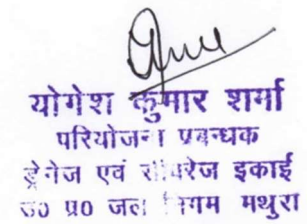 योगेश कुमार शर्मा
परियोजना प्रबन्धक
ड्रेनेज एवं सीवरेज इकाई
उ० प्र० जल निगम मथुरा